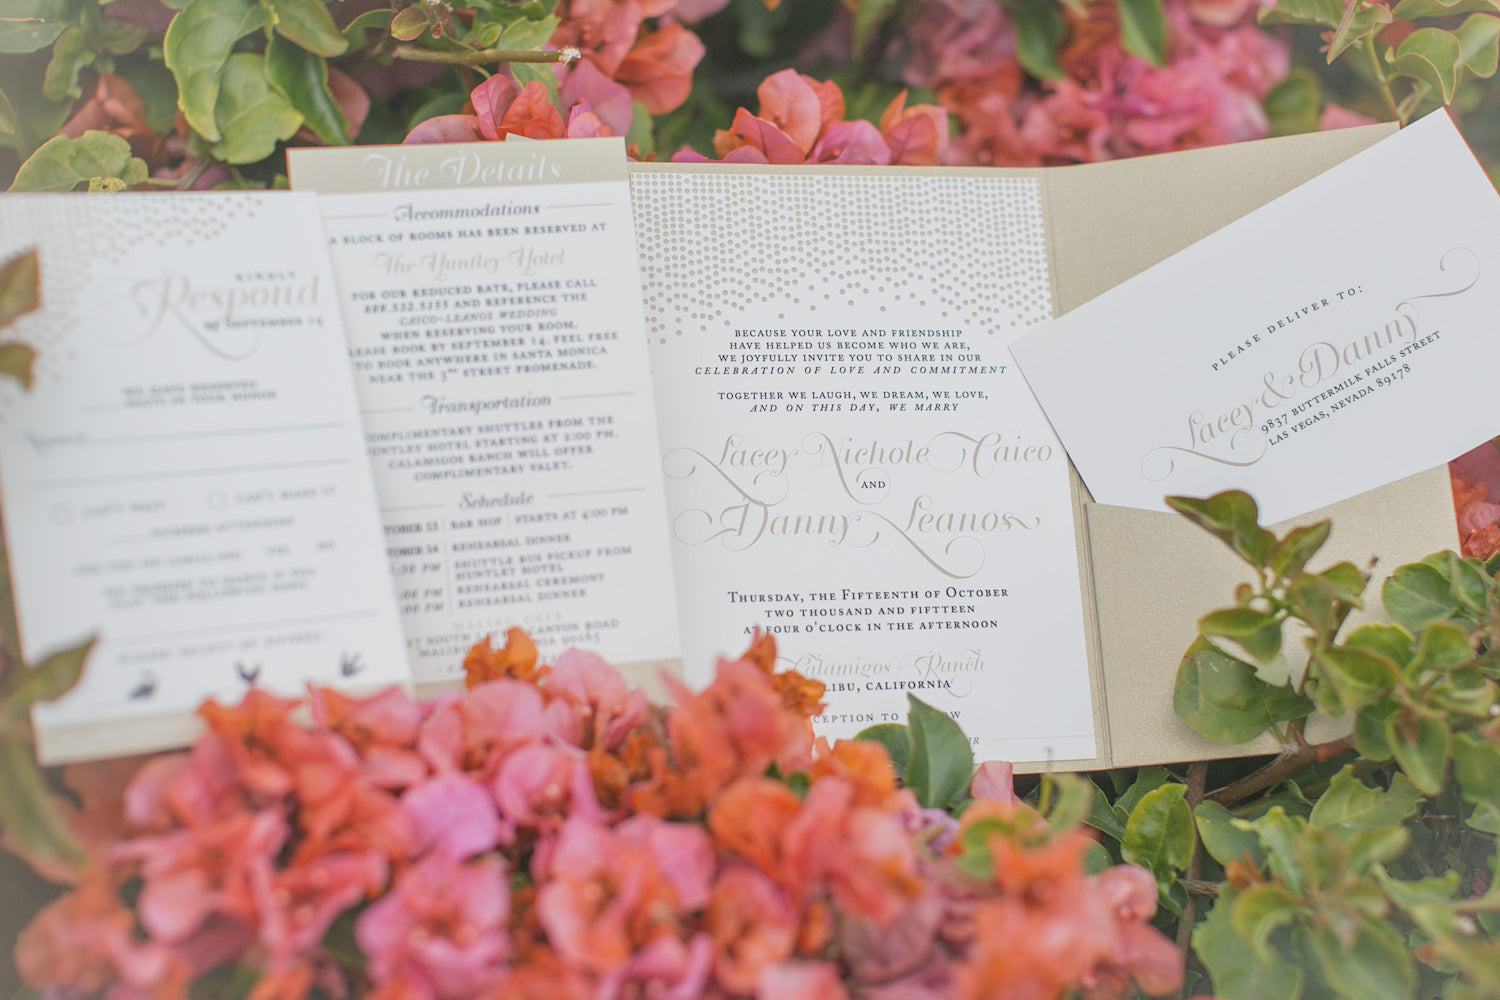 KINDLY
Respond
BY SEPTEMBER 15
WE HAVE RESERVED
SEATS IN YOUR HONOR
CAN'T WAIT
CAN'T MAKE IT
NUMBER ATTENDING
The Details
Accommodations
A BLOCK OF ROOMS HAS BEEN RESERVED AT
The Huntley Hotel
FOR OUR REDUCED RATE, PLEASE CALL
AND REFERENCE THE
CAICO-LEANOS WEDDING
WHEN RESERVING YOUR ROOM.
LEASE BOOK BY SEPTEMBER 14. FEEL FREE
TO BOOK ANYWHERE IN SANTA MONICA
NEAR THE 3RD STREET PROMENADE.
Transportation
COMPLIMENTARY SHUTTLES FROM THE
HUNTLEY HOTEL STARTING AT 2:00 PM.
CALAMIGOS RANCH WILL OFFER
COMPLIMENTARY VALET.
Schedule
TOBER 13 BAR HOP STARTS AT 4:00 PM
TOBER 14 REHEARSAL DINNER
:30 PM SHUTTLE BUS PICKUP FROM
HUNTLEY HOTEL
:00 PM REHEARSAL CEREMONY
:00 PM REHEARSAL DINNER
MALIBU CAFE
CANYON ROAD
MALIBU 90265
BECAUSE YOUR LOVE AND FRIENDSHIP
HAVE HELPED US BECOME WHO WE ARE,
WE JOYFULLY INVITE YOU TO SHARE IN OUR
CELEBRATION OF LOVE AND COMMITMENT
TOGETHER WE LAUGH, WE DREAM, WE LOVE,
AND ON THIS DAY, WE MARRY
Lacey Nichole Caico
AND
Danny Leanos
THURSDAY, THE FIFTEENTH OF OCTOBER
TWO THOUSAND AND FIFTTEEN
AT FOUR O'CLOCK IN THE AFTERNOON
Calamigos Ranch
ALIBU, CALIFORNIA
CEPTION TO FOLLOW
PLEASE DELIVER TO:
Lacey & Danny
9837 BUTTERMILK FALLS STREET
LAS VEGAS, NEVADA 89178